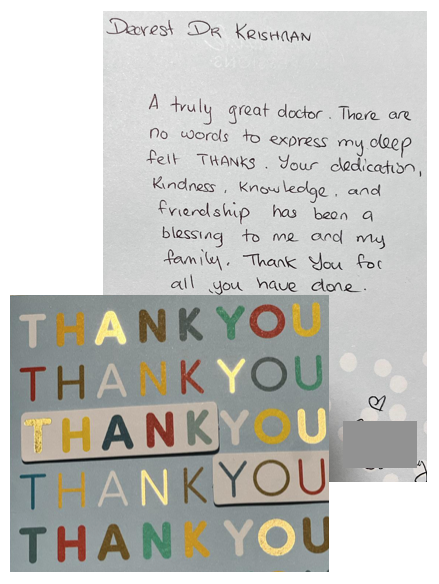 Dearest DR KRISHNAN
A truly great doctor. There are
no words to express my deep
felt THANKS. Your dedication,
Kindness, Knowledge, and
friendship has been a
blessing to me and my
family. Thank You for
all you have done.
THANK YOU
THANK YOU
THANK YOU
THANK YOU
THANK YOU